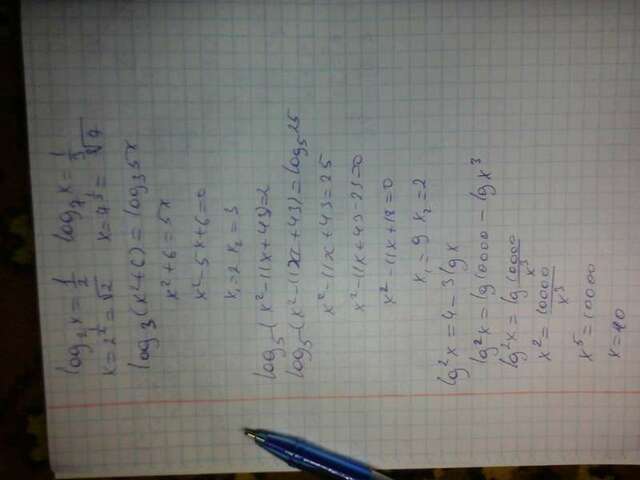 log₂x = 1/2 log₇x = 1/3
x = 2^(1/2) = √2 x = 7^(1/3) = ∛7
log₃(x²+6) = log₃5x
x²+6 = 5x
x²-5x+6=0
x₁=2 x₂=3
log₅(x²-11x+43)=2
log₅(x²-11x+43)=log₅25
x²-11x+43=25
x²-11x+43-25=0
x²-11x+18=0
x₁=9 x₂=2
lg²x = 4-3lgx
lg²x = lg10000 - lgx³
lg²x = lg 10000/x³
x² = 10000/x³
x⁵ = 10000
x=10